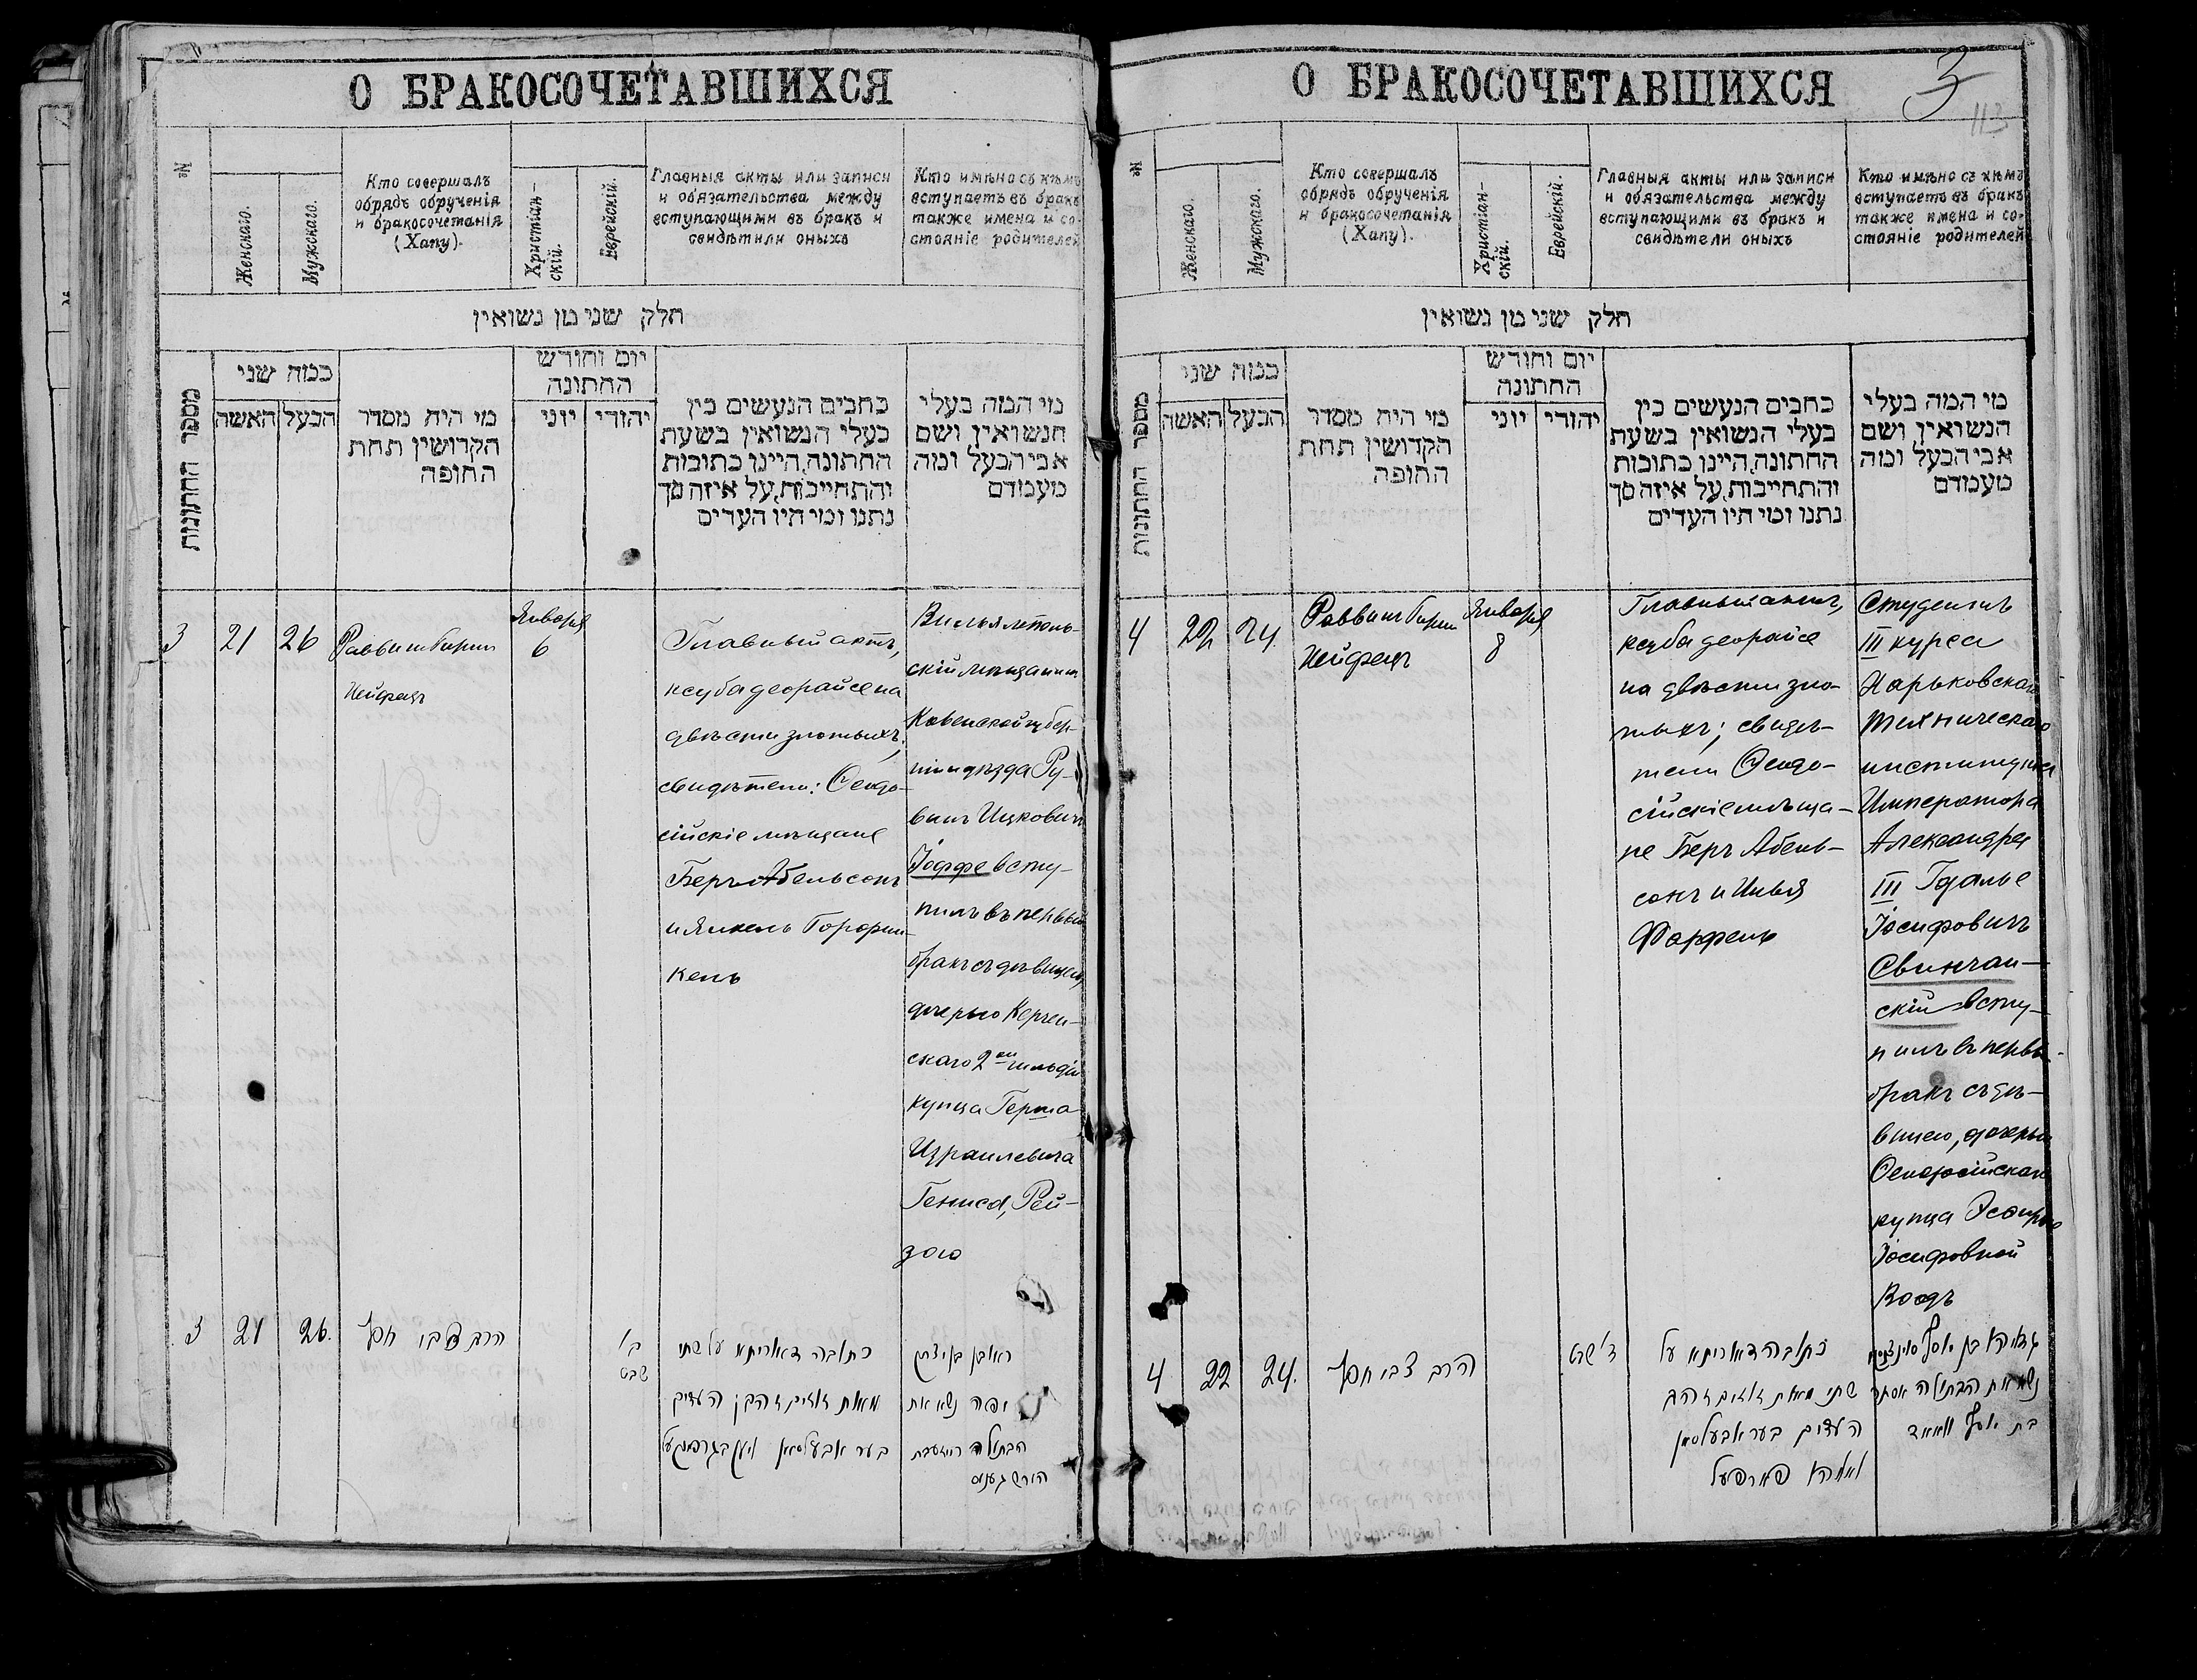 О БРАКОСОЧЕТАВШИХСЯ
№
Женскаго.
Мужскаго.
Кто совершалъ
обрядъ обрученія
и бракосочетанія
(Хапу).
Христіан-
скій.
Еврейскій.
Главныя акты или записи
и обязательства между
вступающими въ бракъ и
свидѣтили оныхъ
Кто имѣно съ кѣмъ
вступаетъ въ бракъ
также имена и со-
стояніе родителей
חלק שני מן נשואין
מספר החתונות
כמה שני
האשה
הבעל
מי היה מסדר
הקדושין תחת
החופה
יום וחודש
החתונה
יוני
יהודי
כתבים הנעשים בין
בעלי הנשואין בשעת
החתונה, היינו כתובות
והתחייבות, על איזה סך
נתנו ומי היו העדים
מי המה בעלי
הנשואין ושם
אבי הבעל ומה
מעמדם
3
21
26
Раввинъ
Января
6
Главный актъ,
ксуба деорайсе на
двѣсти злотыхъ;
свидѣтели: Ѳеодо-
сійскіе мѣщане
Беръ Абельсонъ
и Янкель
кель
скій мѣщанинъ
Ковенской губер-
ніи уѣзда Ру-
винъ Ицковичъ
Іоффе всту-
пилъ въ первый
бракъ съ дѣвицею,
дочерью Керчен-
скаго 2 ой гильдіи
купца Герша
Израилевича
Гениса, Рей-
зою
3
21
26.
הרב צבי חפץ
ב'
שבט
כתובה דאוריתא על שתי
מאות זוזים זהב העדים
בער אבעלסאן
ראובן בן יצחק
יפה נשא את
הבתולה
הירש גענוס
О БРАКОСОЧЕТАВШИХСЯ
3
113
№
Женскаго.
Мужскаго.
Кто совершалъ
обрядъ обрученія
и бракосочетанія
(Хапу).
Христіан-
скій.
Еврейскій.
Главныя акты или записи
и обязательства между
вступающими въ бракъ и
свидѣтели оныхъ
Кто имѣно съ кѣмъ
вступаетъ въ бракъ
также имена и со-
стояніе родителей
חלק שני מן נשואין
מספר החתונות
כמה שני
האשה
הבעל
מי היה מסדר
הקדושין תחת
החופה
יום וחודש
החתונה
יוני
יהודי
כתבים הנעשים בין
בעלי הנשואין בשעת
החתונה, היינו כתובות
והתחייבות, על איזה סך
נתנו ומי היו העדים
מי המה בעלי
הנשואין ושם
אבי הבעל ומה
מעמדם
4
22
24.
Раввинъ
Января
8
Главный актъ,
ксуба деорайсе
на двѣсти зло-
тыхъ; свидѣ-
тели Ѳеодо-
сійскіе мѣща-
не Беръ Абель-
сонъ и Илья
Фарфель
Студентъ
III курса
Харьковскаго
Техническаго
института
Императора
Александра
III Гдалье
Іосифовичъ
Свинчан-
скій всту-
пилъ въ первы-
бракъ съ дѣ-
вицею, дочерью
Ѳеодосійскаго
купца Эсѳирью
Іосифовной
4
22
24.
הרב צבי חפץ
ד' שבט
כתובה דאוריתא על
שתי מאות זוזים זהב
העדים בער אבעלסאן
ואליהו פארפעל
בן יוסף
נשא את הבתולה אסתר
בת יוסף